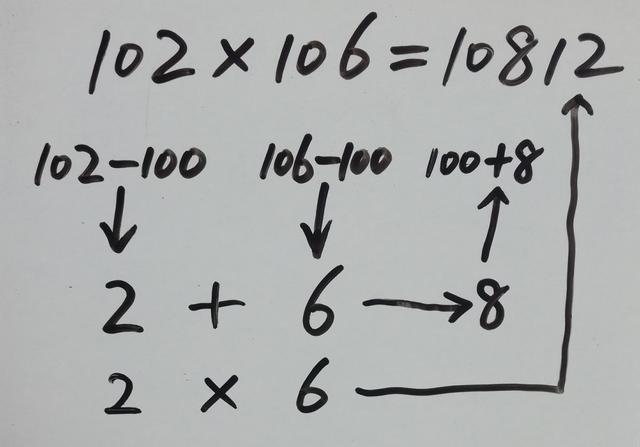 102×106=10812
102-100 106-100 100+8
2 + 6 → 8
2 × 6